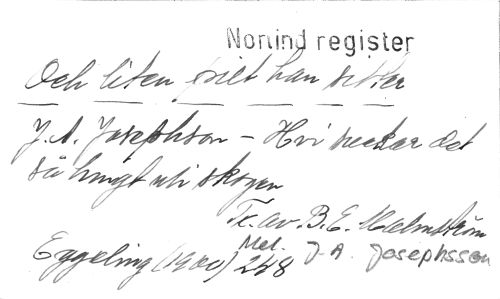 Norlind register
Och liten pilt han sitter
J. A. Josephson - Hvi suckar det
så tungt uti skogen
Tr. av B. E. Malmström
Mel. J. A. Josephsson
Eggeling (1900) 248